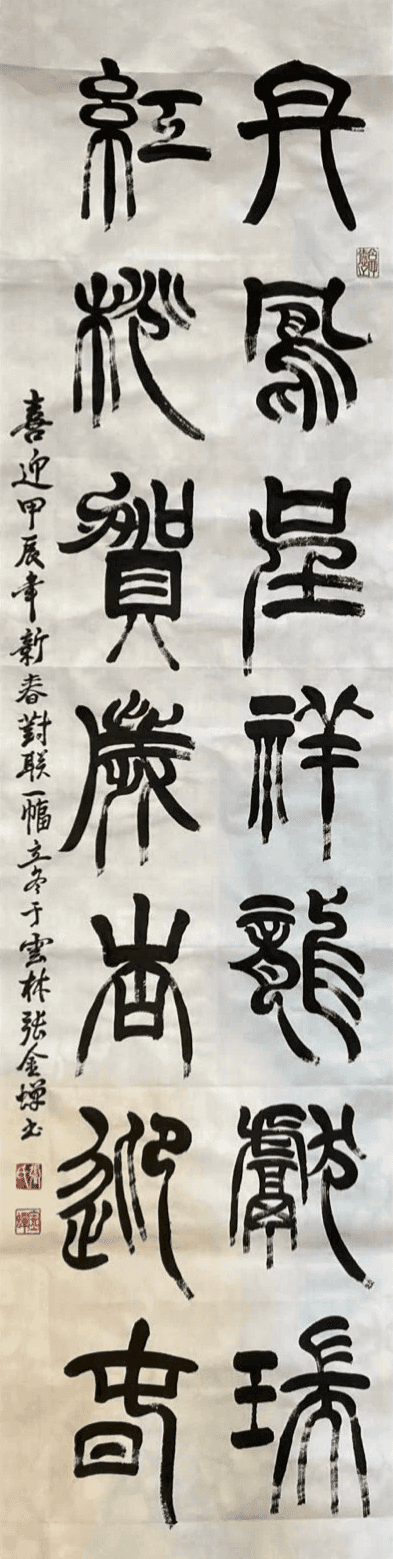 丹鳳呈祥龍獻瑞
紅桃賀歲杏迎春
喜迎甲辰年新春對联一幅立冬于雲林張金蟬书